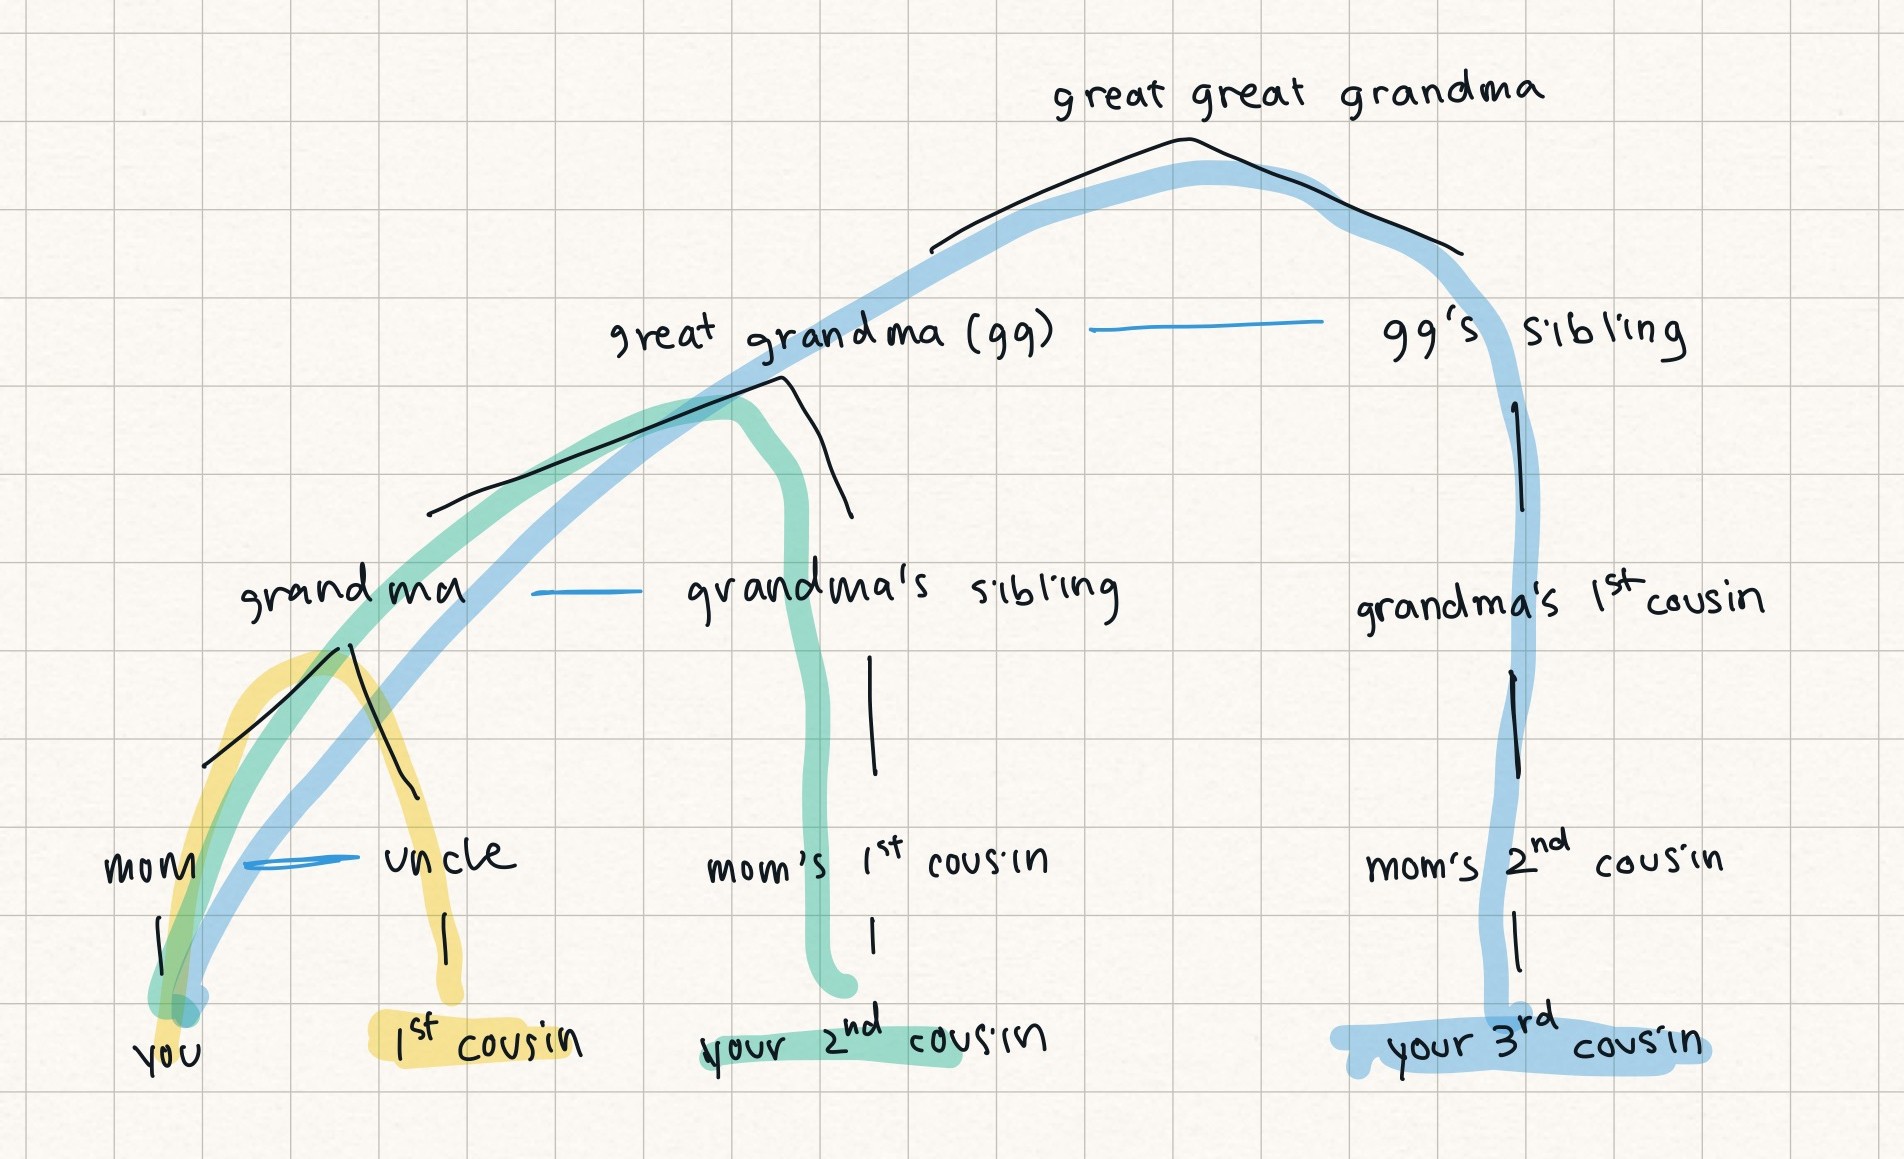 great great grandma
great grandma (gg) gg's sibling
grandma grandma's sibling grandma's 1st cousin
mom uncle mom's 1st cousin mom's 2nd cousin
you 1st cousin your 2nd cousin your 3rd cousin